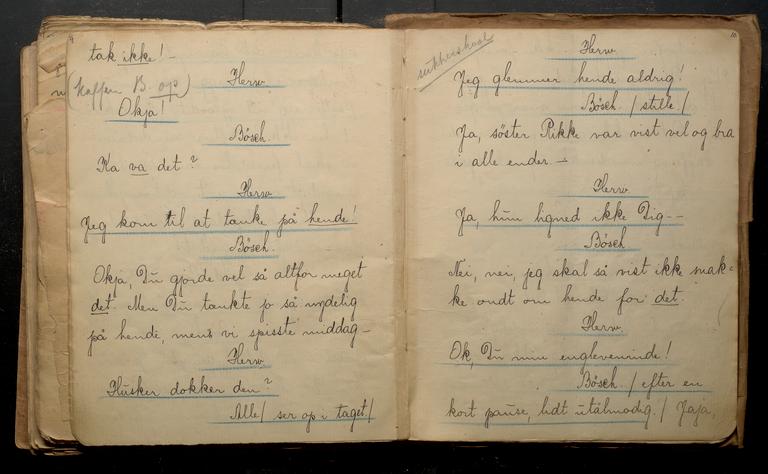 9
tak ikke! -
Herw.
(kaffen B. op)
Okja!
Bösch.
Ka va det?
Herw.
Jeg kom til at tanke på hende!
Bösch.
Okja, Du gjorde vel så altfor meget
det. Men Du tankte jo så nydelig
på hende, mens vi spisste middag -
Herw.
Husker dokker den?
Alle / ser op i taget /
10
sukkerskaal
Herw.
Jeg glemmer hende aldrig!
Bösch. / stille /
Ja, söster Rikke var vist vel og bra
i alle ender -
Herw.
Ja, hun ligned ikke Dig --
Bösch
Nei, nei, jeg skal så vist ikke snak-
ke ondt om hende for det.
Herw.
Ok, Du min englevenninde!
Bösch / efter en
kort pause, lidt utålmodig. / Jaja,